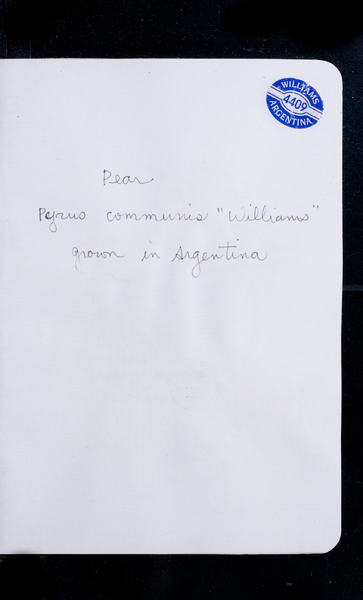 WILLIAMS
4409
ARGENTINA
Pear
Pyrus communis "Williams"
grown in Argentina